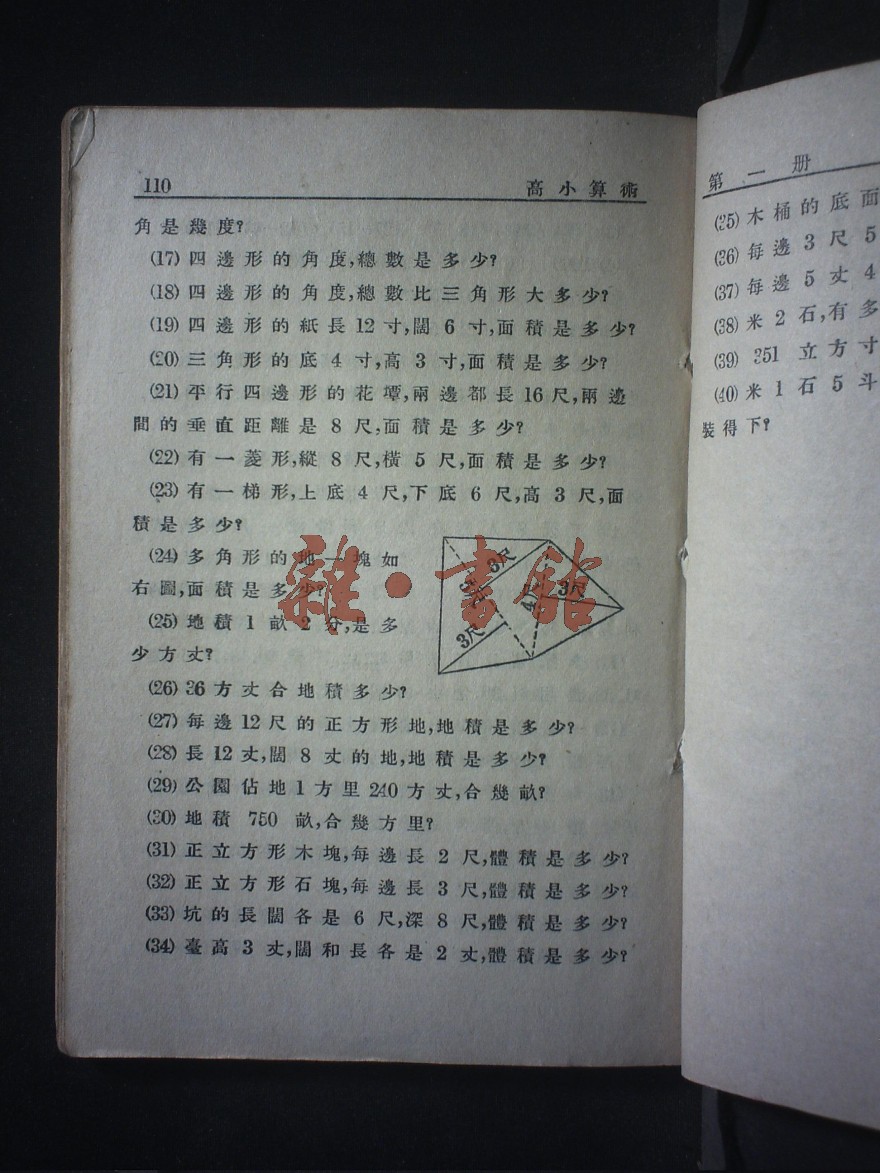 110 高小算術
角是幾度?
(17) 四邊形的角度,總數是多少?
(18) 四邊形的角度,總數比三角形大多少?
(19) 四邊形的紙長12寸,闊6寸,面積是多少?
(20) 三角形的底4寸,高3寸,面積是多少?
(21) 平行四邊形的花壇,兩邊都長16尺,兩邊
間的垂直距離是8尺,面積是多少?
(22) 有一菱形,縱8尺,橫5尺,面積是多少?
(23) 有一梯形,上底4尺,下底6尺,高3尺,面
積是多少?
(24) 多角形的地一塊如
右圖,面積是多少?
(25) 地積1畝2分,是多
少方丈?
3尺
3尺
4尺
3尺
雜·書館
(26) 36方丈合地積多少?
(27) 每邊12尺的正方形地,地積是多少?
(28) 長12丈,闊8丈的地,地積是多少?
(29) 公園佔地1方里240方丈,合幾畝?
(30) 地積750畝,合幾方里?
(31) 正立方形木塊,每邊長2尺,體積是多少?
(32) 正立方形石塊,每邊長3尺,體積是多少?
(33) 坑的長闊各是6尺,深8尺,體積是多少?
(34) 臺高3丈,闊和長各是2丈,體積是多少?
第一册
(35) 木桶的底面
(36) 每邊3尺5
(37) 每邊5丈4
(38) 米2石,有多
(39) 351立方寸
(40) 米1石5斗
裝得下?